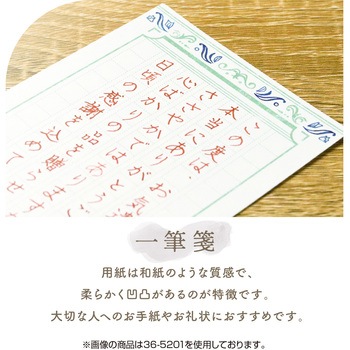 この度は、お気
本当にありがとう
ささやかではあります
心ばかりの品を贈らせ
日頃の感謝を込めて
一筆箋
用紙は和紙のような質感で、
柔らかく凹凸があるのが特徴です。
大切な人へのお手紙やお礼状におすすめです。
※画像の商品は36-5201を使用しております。